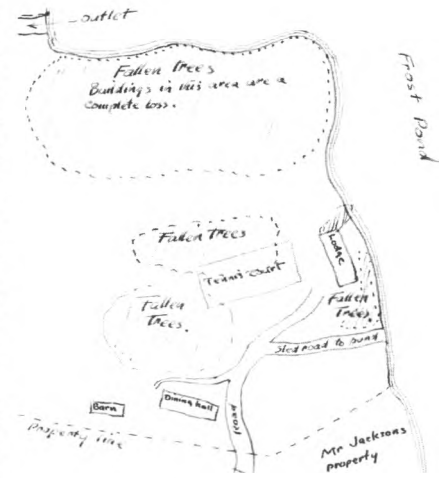 outlet
Fallen Trees
Buildings in this area are a
complete loss.
Frost Pond
Fallen Trees
Lodge
Tennis court
Fallen
Trees.
Fallen
Trees.
Sled road to pond
Barn
Dining hall
Road
Property line
Mr Jacksons
property